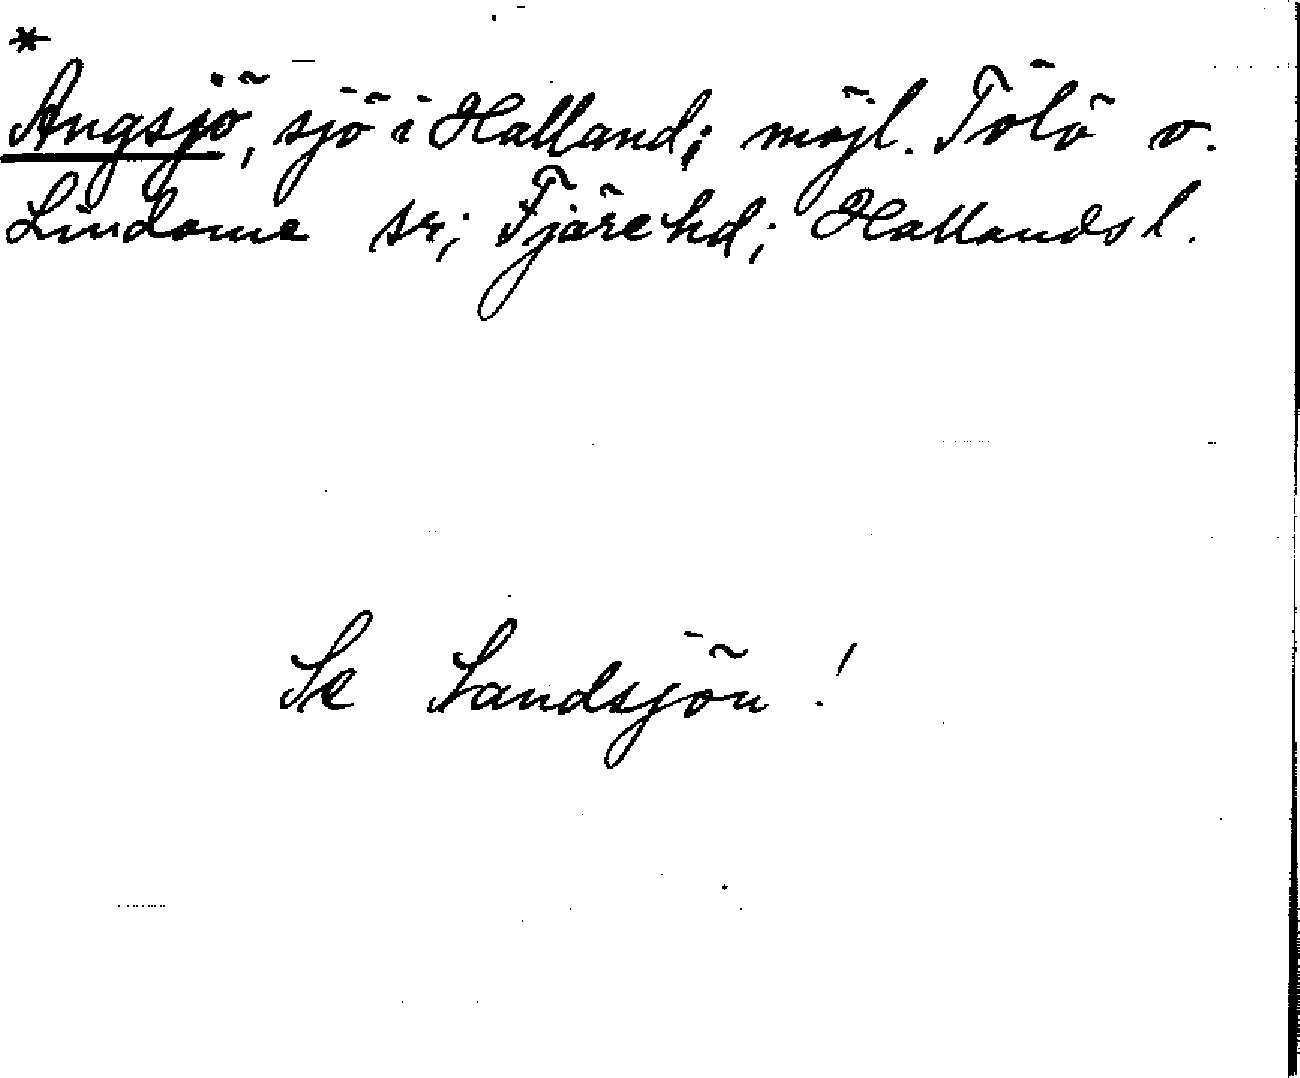 *
Angsjö, sjö i Halland; möjl. Tölö o.
Lindome sr; Fjäre hd; Hallands l.
Se Sandsjön!